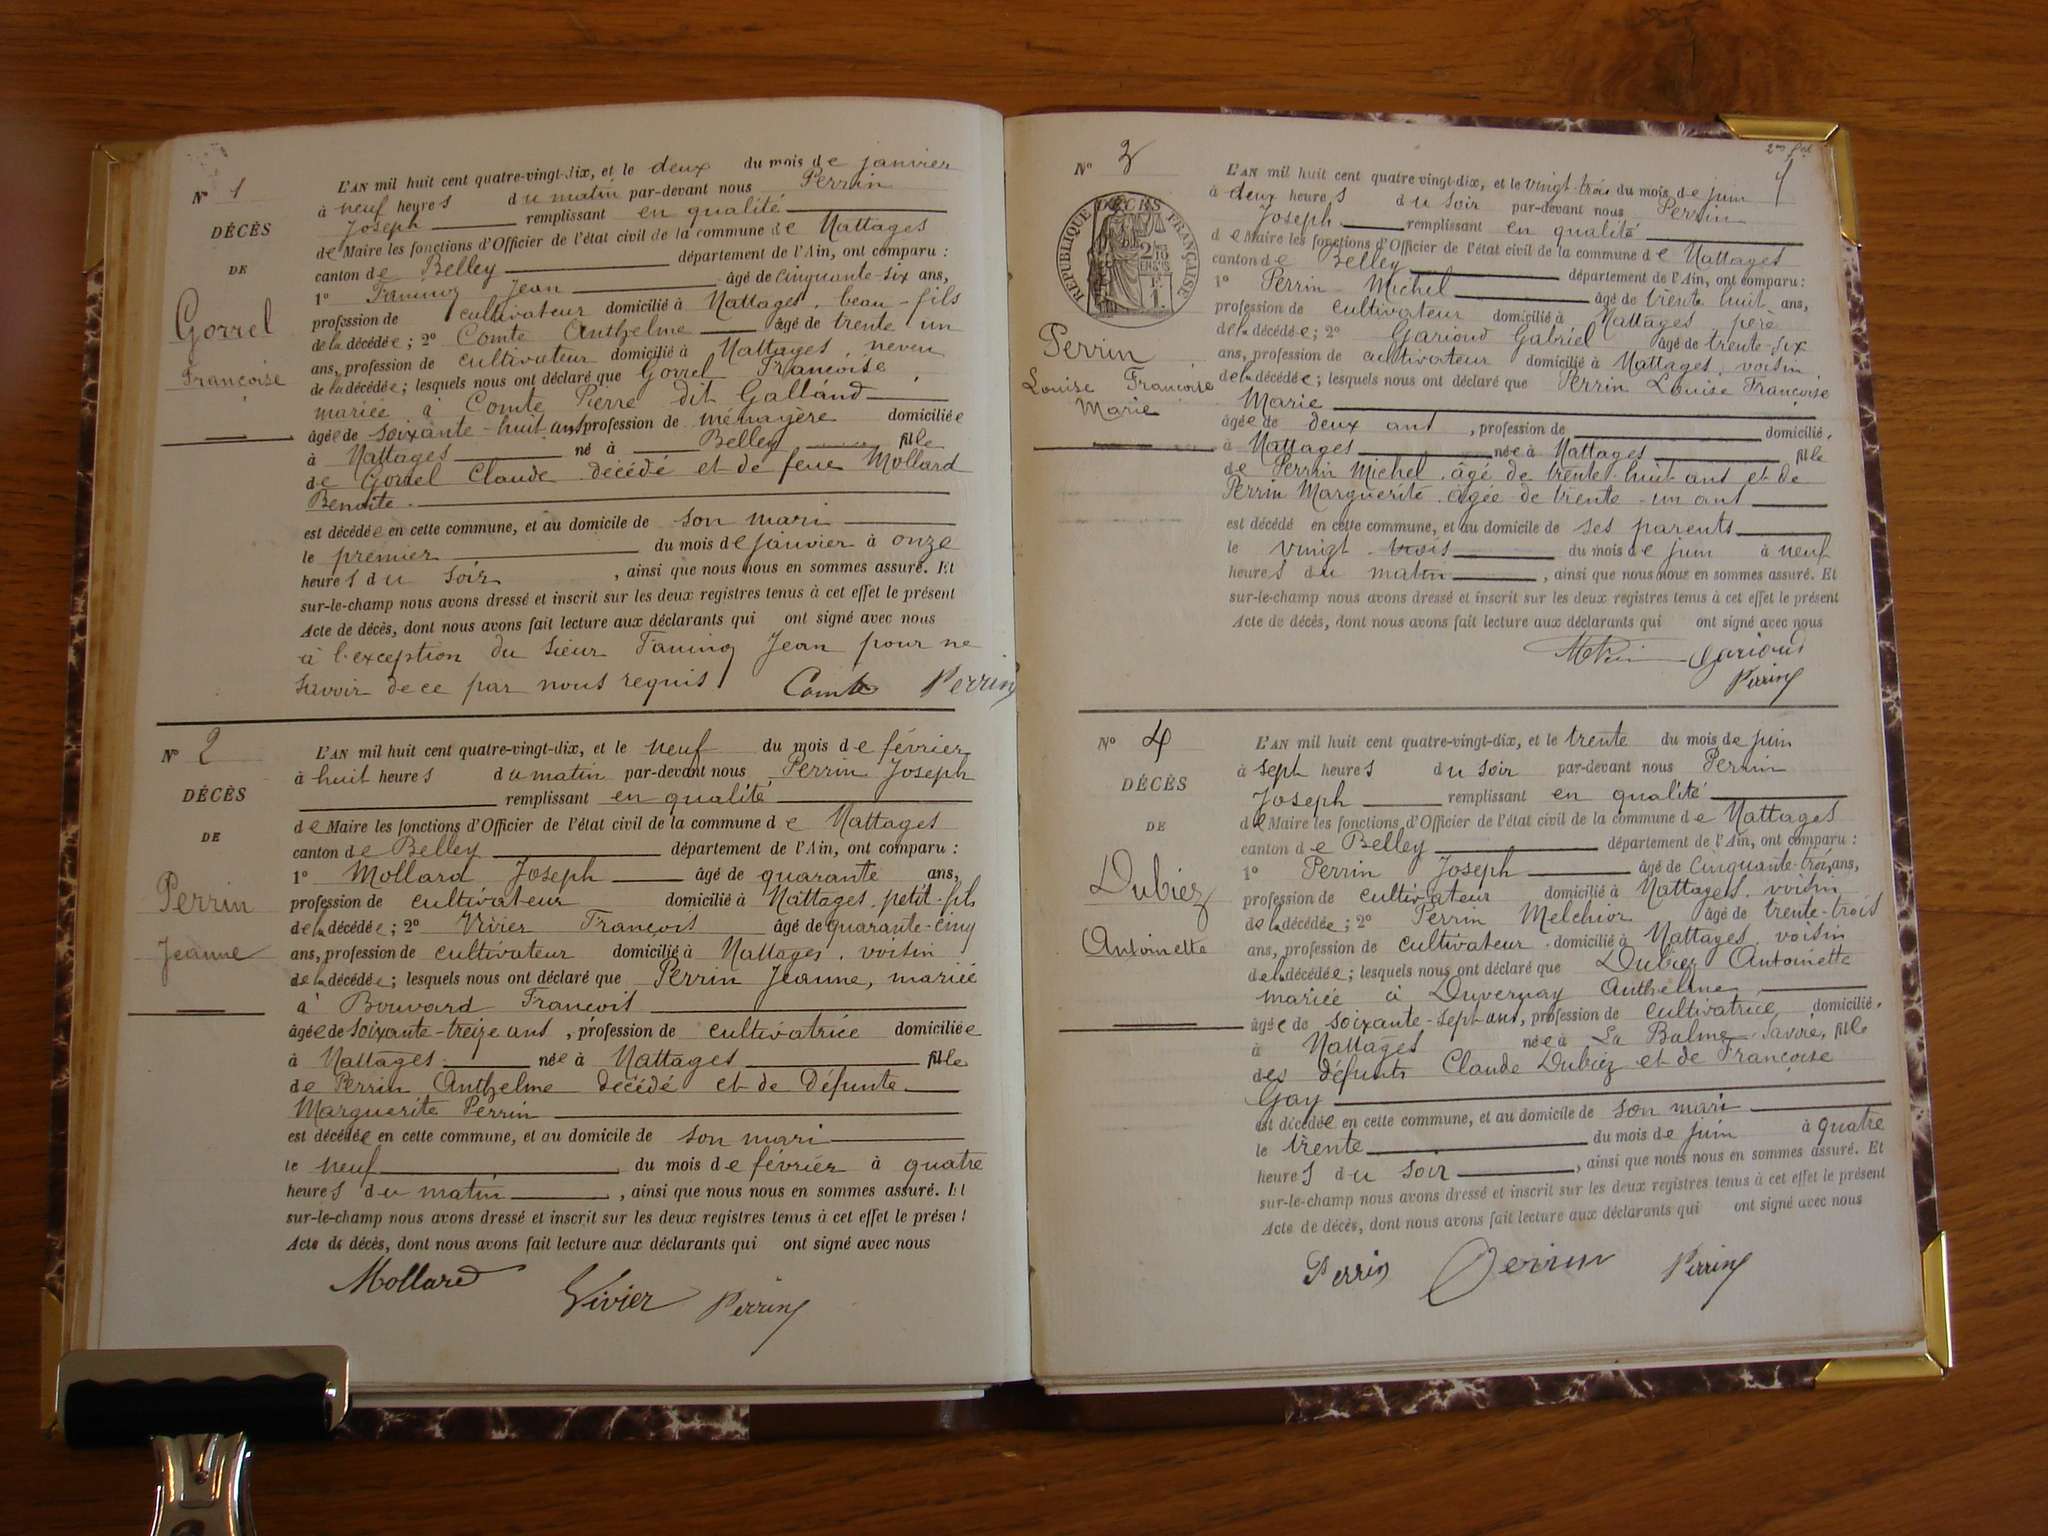 N° 1
DÉCÈS
DE
Gorrel
Françoise
L'AN mil huit cent quatre-vingt-dix, et le deux du mois de janvier
à neuf heures du matin par-devant nous Perrin
Joseph remplissant en qualité
de Maire les fonctions d'Officier de l'état civil de la commune de Nattages
canton de Belley département de l'Ain, ont comparu :
1° Jean âgé de cinquante-six ans,
profession de cultivateur domicilié à Nattages, beau-fils
de la décédée ; 2° Comte Anthelme âgé de trente un
ans, profession de cultivateur domicilié à Nattages, neveu
de la décédée ; lesquels nous ont déclaré que Gorrel Françoise
mariée à Comte Pierre dit Galland
âgée de soixante-huit ans, profession de ménagère domiciliée
à Nattages né à Belley fille
de Gorrel Claude décédé et de feue Mollard
Benoite
est décédée en cette commune, et au domicile de son mari
le premier du mois de janvier à onze
heures du soir , ainsi que nous nous en sommes assuré. Et
sur-le-champ nous avons dressé et inscrit sur les deux registres tenus à cet effet le présent
Acte de décès, dont nous avons fait lecture aux déclarants qui ont signé avec nous
à l'exception du sieur Jean pour ne
savoir de ce par nous requis. Comte Perrin
N° 2
DÉCÈS
DE
Perrin
Jeanne
L'AN mil huit cent quatre-vingt-dix, et le neuf du mois de février
à huit heures du matin par-devant nous Perrin Joseph
remplissant en qualité
de Maire les fonctions d'Officier de l'état civil de la commune de Nattages
canton de Belley département de l'Ain, ont comparu :
1° Mollard Joseph âgé de quarante ans,
profession de cultivateur domicilié à Nattages, petit-fils
de la décédée ; 2° Vivier François âgé de quarante-cinq
ans, profession de cultivateur domicilié à Nattages, voisin
de la décédée ; lesquels nous ont déclaré que Perrin Jeanne, mariée
à Bouvard François
âgée de soixante-treize ans, profession de cultivatrice domiciliée
à Nattages née à Nattages fille
de Perrin Anthelme décédé et de Défunte
Marguerite Perrin
est décédée en cette commune, et au domicile de son mari
le neuf du mois de février à quatre
heures du matin , ainsi que nous nous en sommes assuré. Et
sur-le-champ nous avons dressé et inscrit sur les deux registres tenus à cet effet le présent
Acte de décès, dont nous avons fait lecture aux déclarants qui ont signé avec nous
Mollard Vivier Perrin
N° 3
RÉPUBLIQUE FRANÇAISE
Perrin
Louise Françoise
Marie
L'AN mil huit cent quatre-vingt-dix, et le vingt-trois du mois de juin
à deux heures du soir par-devant nous Perrin
Joseph remplissant en qualité
de Maire les fonctions d'Officier de l'état civil de la commune de Nattages
canton de Belley département de l'Ain, ont comparu :
1° Perrin Michel âgé de trente huit ans,
profession de cultivateur domicilié à Nattages père
de la décédée ; 2° Garioud Gabriel âgé de trente-six
ans, profession de cultivateur domicilié à Nattages, voisin
de la décédée ; lesquels nous ont déclaré que Perrin Louise Françoise
Marie
âgée de deux ans , profession de domicilié
à Nattages née à Nattages fille
de Perrin Michel âgé de trente-huit ans et de
Perrin Marguerite âgée de trente-un ans
est décédé en cette commune, et au domicile de ses parents
le vingt-trois du mois de juin à neuf
heures du matin , ainsi que nous nous en sommes assuré. Et
sur-le-champ nous avons dressé et inscrit sur les deux registres tenus à cet effet le présent
Acte de décès, dont nous avons fait lecture aux déclarants qui ont signé avec nous
Garioud
Perrin
N° 4
DÉCÈS
DE
Dubiez
Antoinette
L'AN mil huit cent quatre-vingt-dix, et le trente du mois de juin
à sept heures du soir par-devant nous Perrin
Joseph remplissant en qualité
de Maire les fonctions d'Officier de l'état civil de la commune de Nattages
canton de Belley département de l'Ain, ont comparu :
1° Perrin Joseph âgé de cinquante-trois ans,
profession de cultivateur domicilié à Nattages, voisin
de la décédée ; 2° Perrin Melchior âgé de trente-trois
ans, profession de cultivateur domicilié à Nattages, voisin
de la décédée ; lesquels nous ont déclaré que Dubiez Antoinette
mariée à Duvernay Anthelme
âgée de soixante-sept ans, profession de cultivatrice domicilié
à Nattages née à La Balme Savoie, fille
des défunts Claude Dubiez et de Françoise
Gay
est décédée en cette commune, et au domicile de son mari
le trente du mois de juin à quatre
heures du soir , ainsi que nous nous en sommes assuré. Et
sur-le-champ nous avons dressé et inscrit sur les deux registres tenus à cet effet le présent
Acte de décès, dont nous avons fait lecture aux déclarants qui ont signé avec nous
Perrin Perrin Perrin